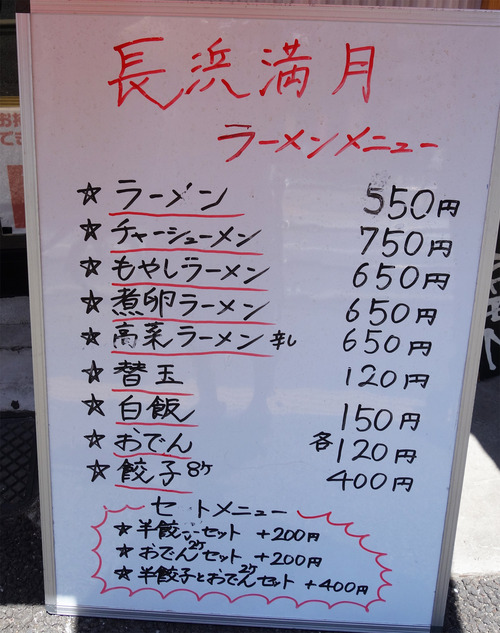 長浜満月
ラーメンメニュー
☆ ラーメン 550円
☆ チャーシューメン 750円
☆ もやしラーメン 650円
☆ 煮卵ラーメン 650円
☆ 高菜ラーメン 辛し 650円
☆ 替玉 120円
☆ 白飯 150円
☆ おでん 各120円
☆ 餃子8ケ 400円
セットメニュー
★ 半餃子セット +200円
★ おでん2ケセット +200円
★ 半餃子とおでん2ケセット +400円